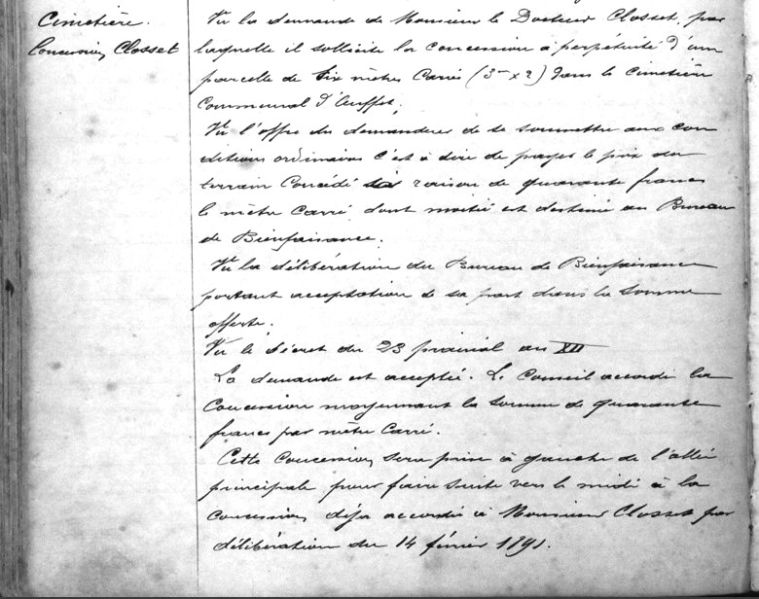 Cimetière.
Concession Closset
Vu la demande de Monsieur le Docteur Closset, par
laquelle il sollicite la concession à perpétuité d'une
parcelle de six mètres carrés (3m x 2) dans le cimetière
Communal d'Ouffet,
Vu l'offre du demandeur de se soumettre aux con
ditions ordinaires c'est à dire de payer le prix du
terrain Concédé à raison de quarante francs
le mètre Carré dont moitié est destiné au Bureau
de Bienfaisance.
Vu la délibération du Bureau de Bienfaisance
portant acceptation de sa part dans la somme
offerte.
Vu le décret du 23 prairial an XII
La demande est acceptée. Le Conseil accorde la
Concession moyennant la somme de quarante
francs par mètre Carré.
Cette Concession sera prise à gauche de l'allée
principale pour faire suite vers le midi à la
concession déja accordée à Monsieur Closset par
délibération du 14 février 1891.